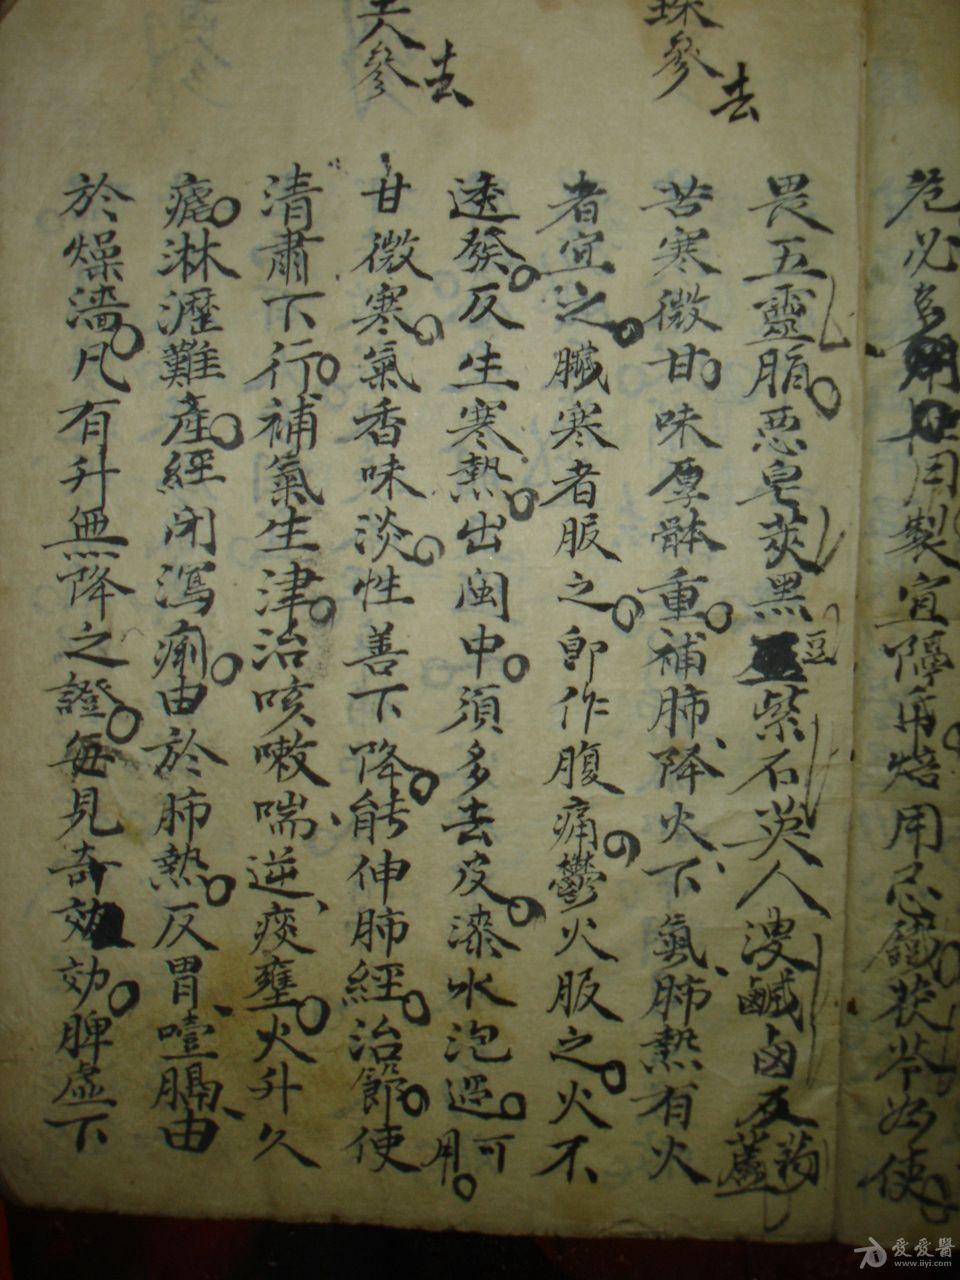 危必多用但用製宜隔紙焙用忌鐵茯苓為使
畏五靈脂惡皂莢黑豆紫石英人溲鹹鹵反藜蘆
珠參去
苦寒微甘味厚體重補肺降火下氣肺熱有火
者宜之臟寒者服之即作腹痛鬱火服之火不
透發反生寒熱出閩中須多去皮滚水泡過可用
土人參去
甘微寒氣香味淡性善下降能伸肺經治節使
清肅下行補氣生津治咳嗽喘逆痰壅火升久
瘧淋瀝難產經閉瀉痢由於肺熱反胃噎膈由
於燥濇凡有升無降之證每見奇效脾虛下
愛愛醫
www.iiyi.com